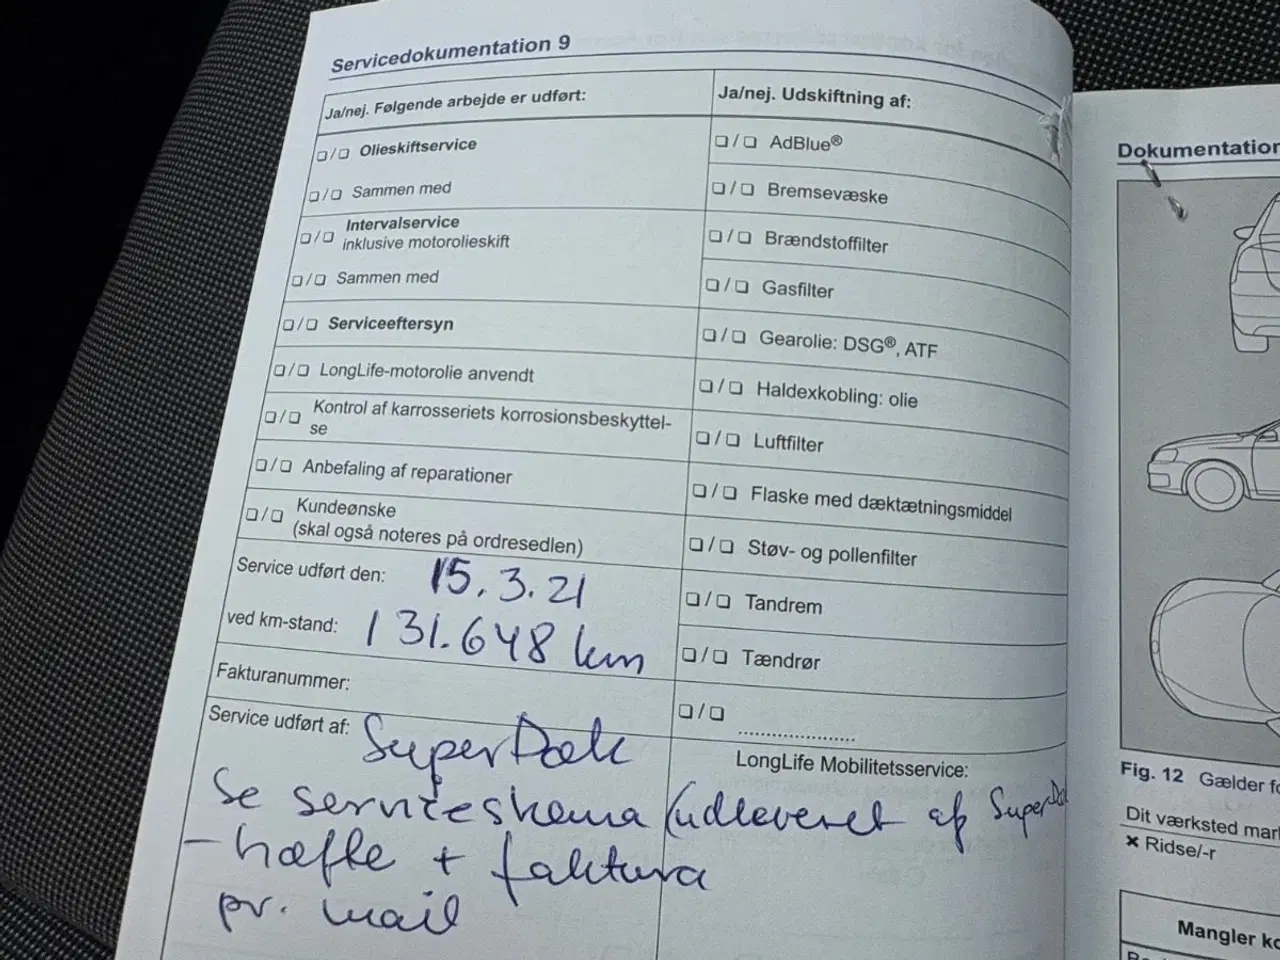 Servicedokumentation 9
Ja/nej. Følgende arbejde er udført:
❏ / ❏ Olieskiftservice
❏ / ❏ Sammen med
❏ / ❏ Intervalservice
inklusive motorolieskift
❏ / ❏ Sammen med
❏ / ❏ Serviceeftersyn
❏ / ❏ LongLife-motorolie anvendt
❏ / ❏ Kontrol af karrosseriets korrosionsbeskyttel-
se
❏ / ❏ Anbefaling af reparationer
❏ / ❏ Kundeønske
(skal også noteres på ordresedlen)
Service udført den: 15.3.21
ved km-stand: 131.648 km
Fakturanummer:
Service udført af: SuperDæk
Se serviceskema (udleveret af SuperDæk
- hæfte + faktura
pr. mail
Ja/nej. Udskiftning af:
❏ / ❏ AdBlue®
❏ / ❏ Bremsevæske
❏ / ❏ Brændstoffilter
❏ / ❏ Gasfilter
❏ / ❏ Gearolie: DSG®, ATF
❏ / ❏ Haldexkobling: olie
❏ / ❏ Luftfilter
❏ / ❏ Flaske med dæktætningsmiddel
❏ / ❏ Støv- og pollenfilter
❏ / ❏ Tandrem
❏ / ❏ Tændrør
❏ / ❏ ....................
LongLife Mobilitetsservice:
Dokumentation
Fig. 12 Gælder fo
Dit værksted mar
× Ridse/-r
Mangler ko